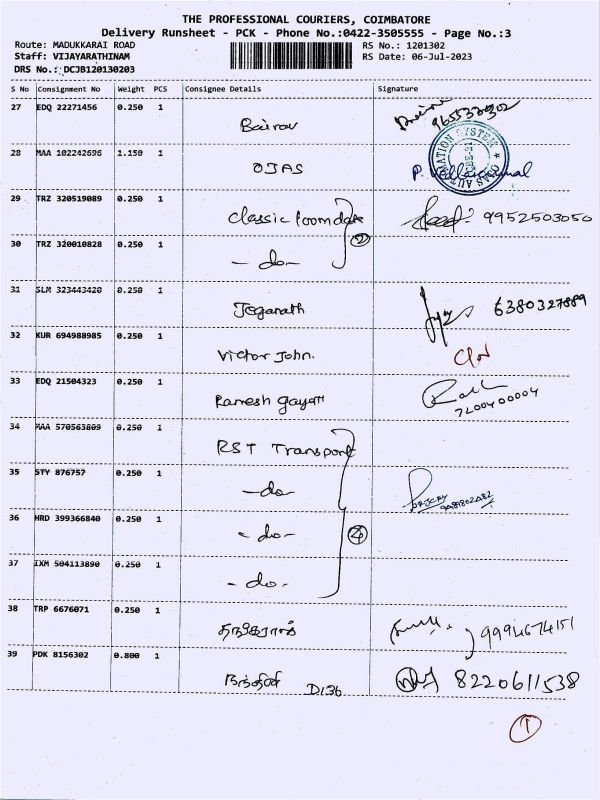 THE PROFESSIONAL COURIERS, COIMBATORE
Delivery Runsheet - PCK - Phone No.:0422-3505555 - Page No.:3
Route: MADUKKARAI ROAD RS No.: 1201302
Staff: VIJAYARATHINAM RS Date: 06-Jul-2023
DRS No.: DCJB120130203
S No Consignment No Weight PCS Consignee Details Signature
27 EDQ 22271456 0.250 1
Bairav
28 MAA 102242696 1.150 1
OJAS
AUTOMATION SYSTEM
CBE-21
29 TRZ 320519089 0.250 1
Classic 9952503050
2
30 TRZ 320010828 0.250 1
- do -
31 SLM 323443420 0.250 1
Jeganath 6380327889
32 KUR 694988985 0.250 1
Victor John.
33 EDQ 21504323 0.250 1
Ramesh 7200400004
34 MAA 570563809 0.250 1
RST Transport
35 STY 876757 0.250 1
- do -
36 HRD 399366840 0.250 1
- do - 4
37 IXM 504113890 0.250 1
- do -
38 TRP 6676071 0.250 1
9994674151
39 PDK 8156302 0.800 1
நந்தினி D136 8220611538